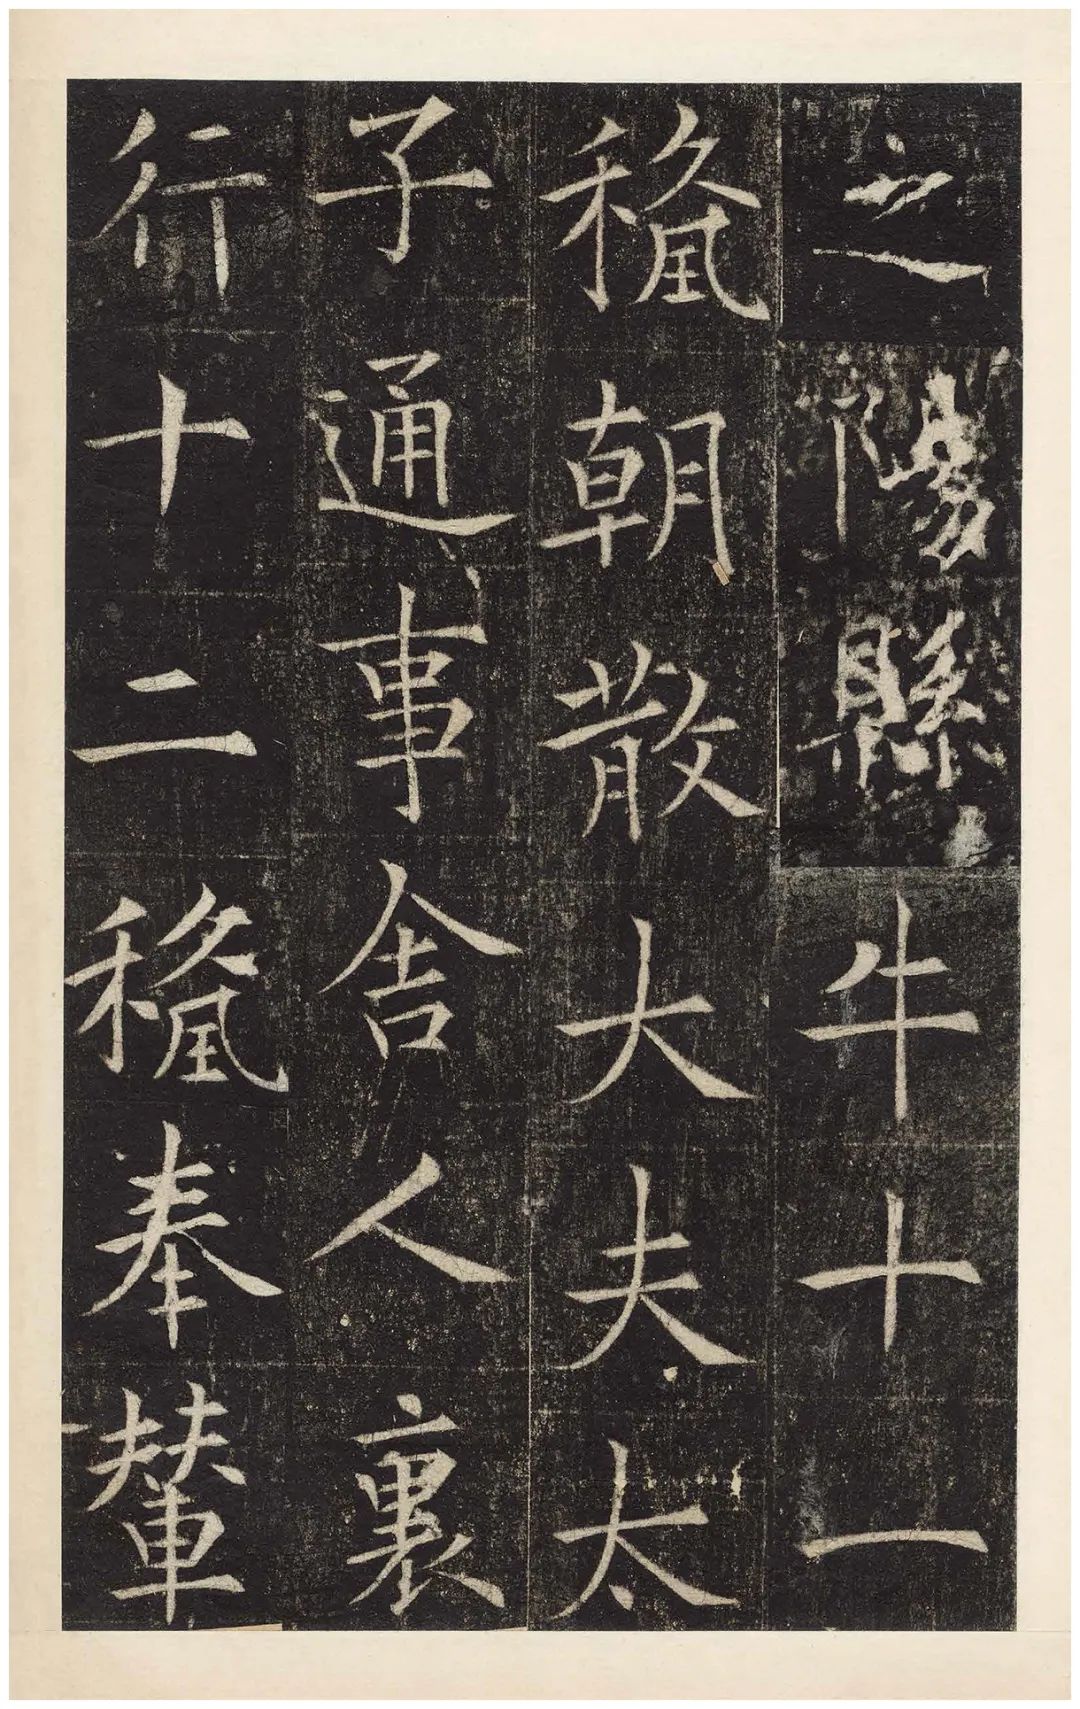 之陽縣牛十一
𥠢朝散大夫太
子通事舍人裏
行十二𥠢奉輦